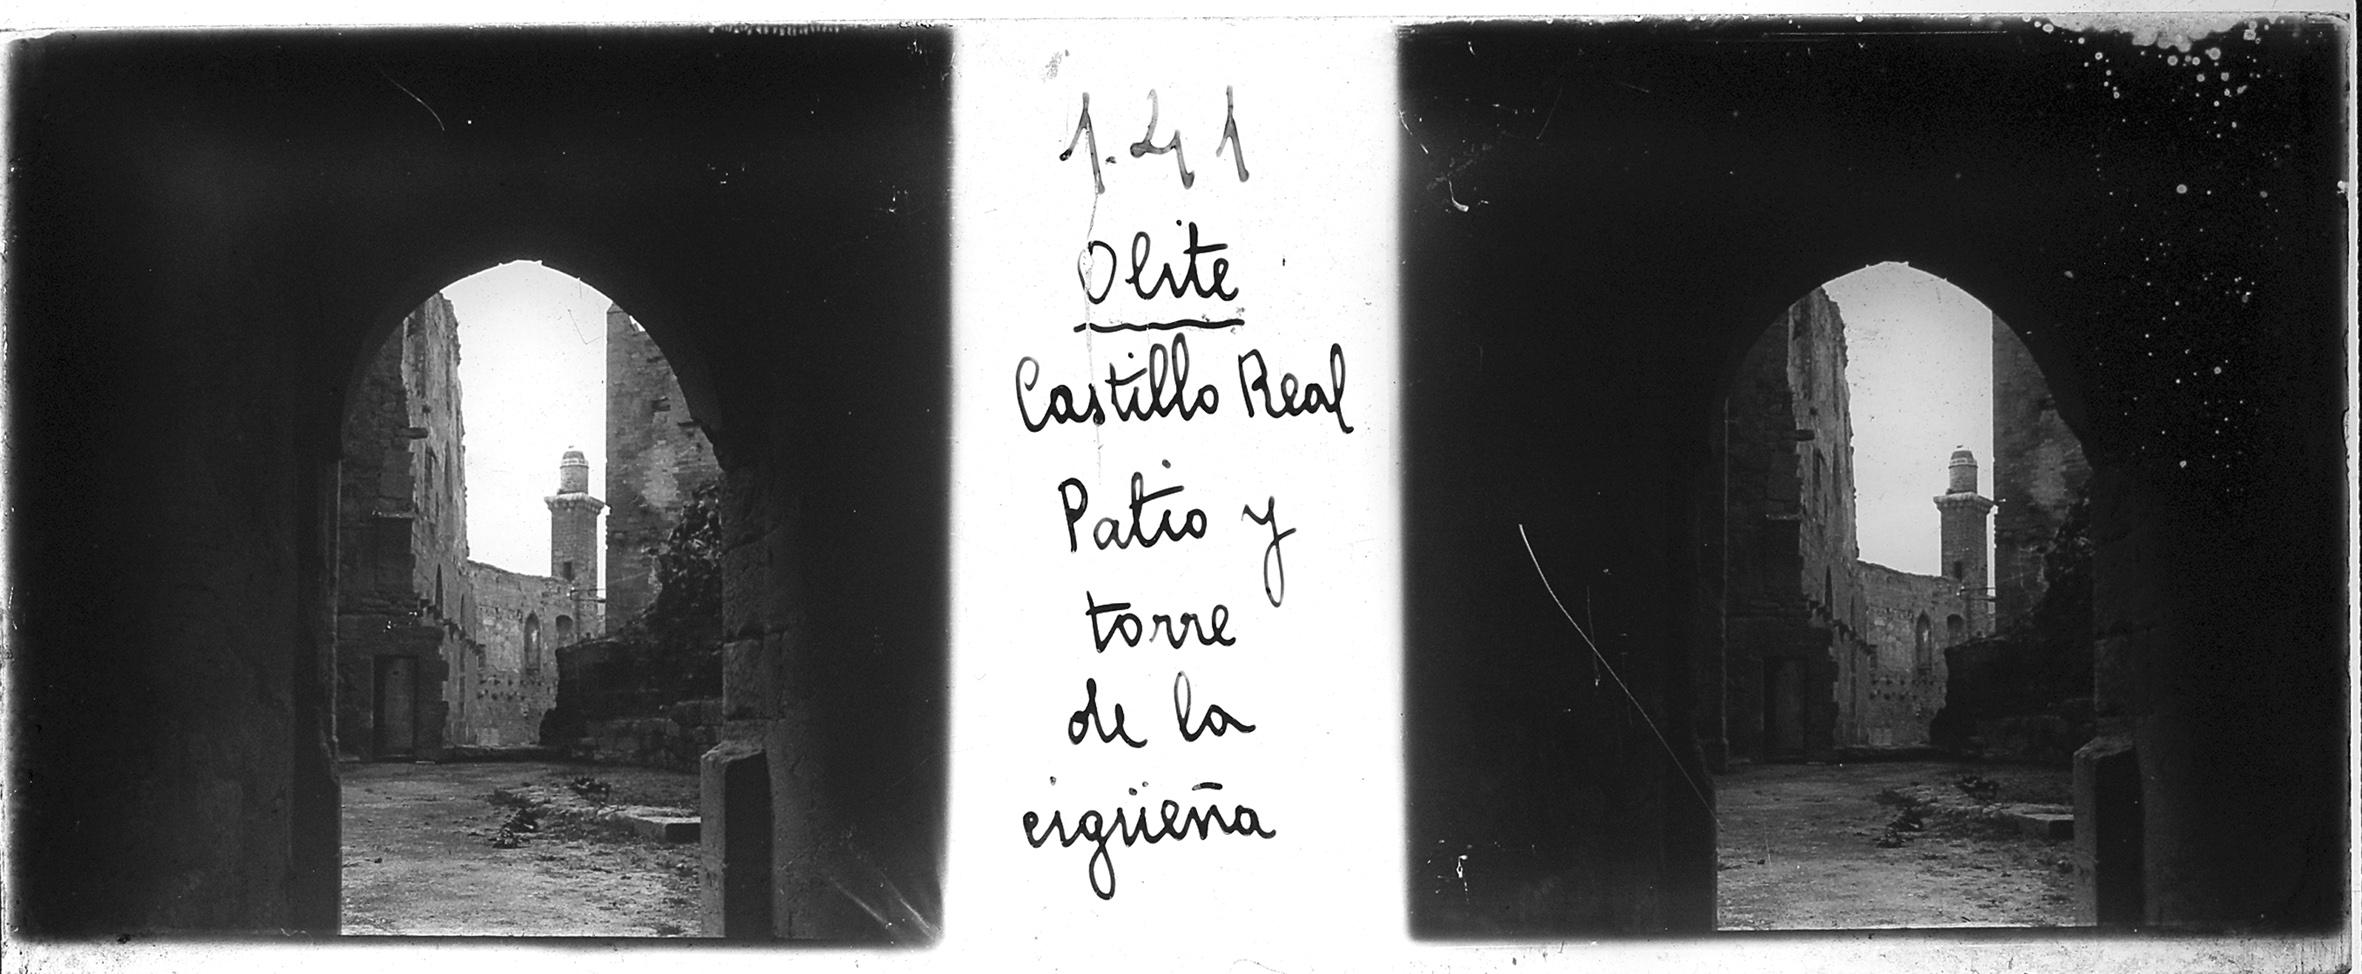 1.41
Olite
Castillo Real
Patio y
torre
de la
cigüeña